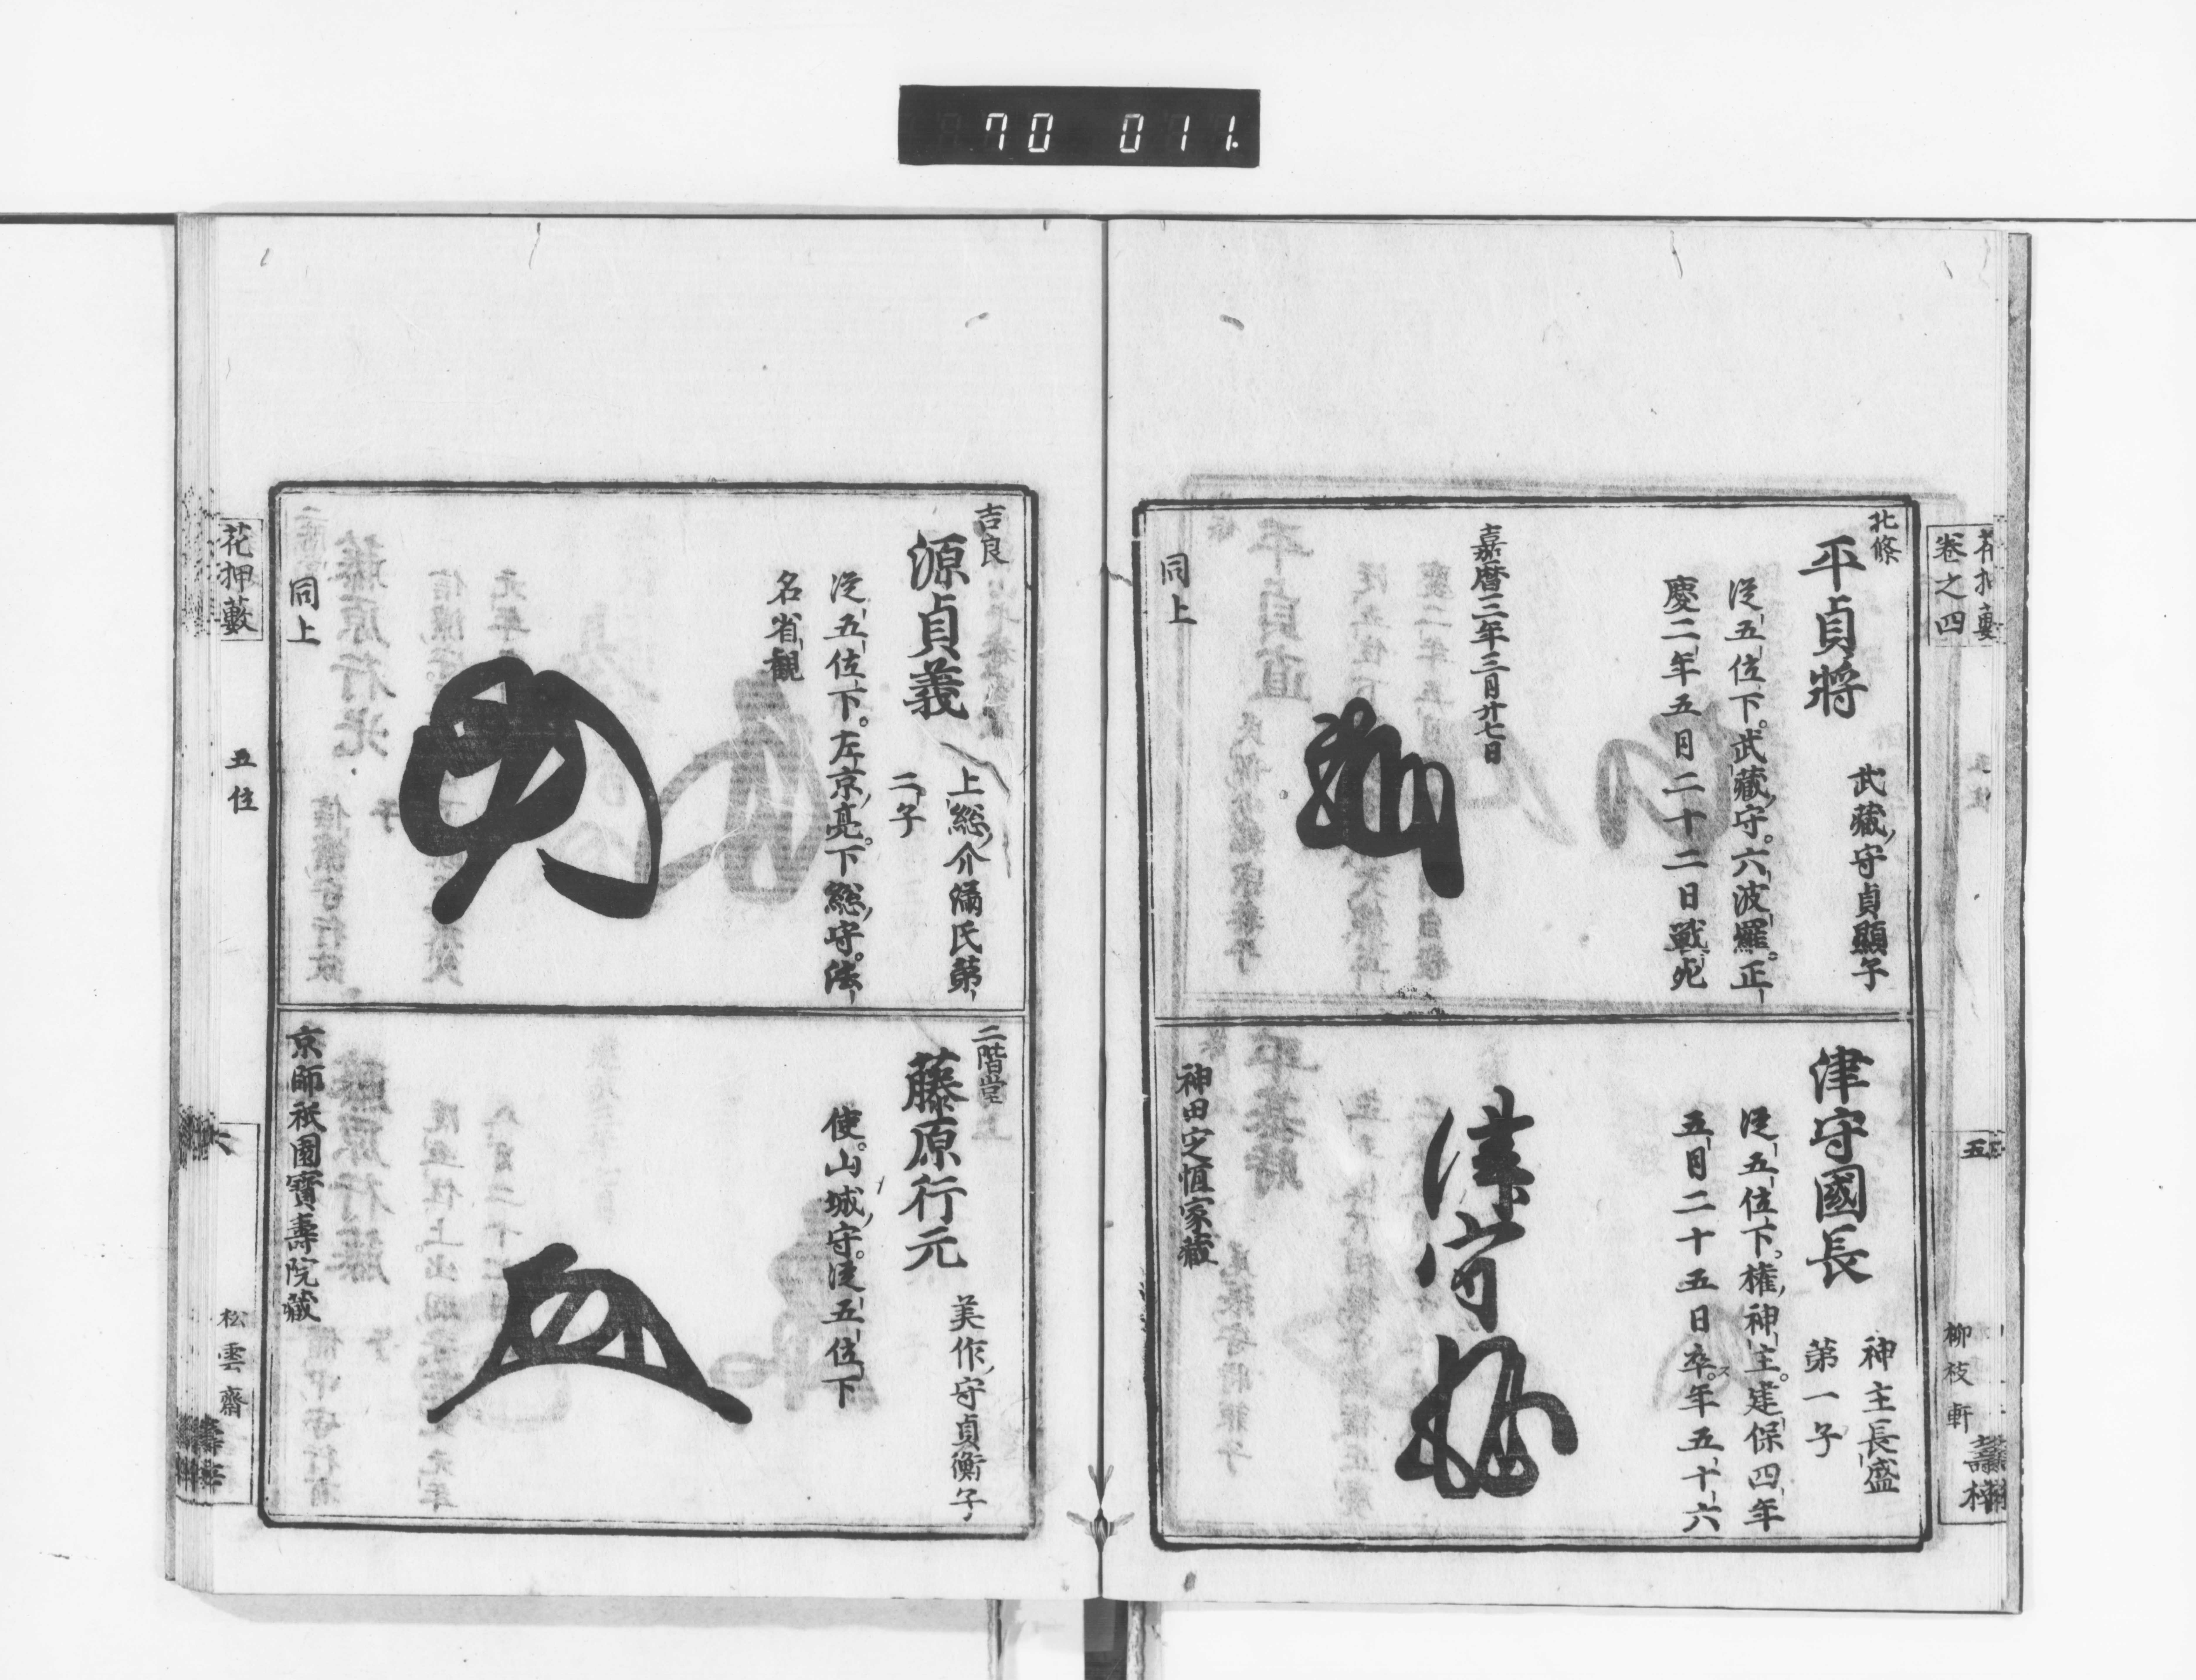 70 011.
卷之四
五
柳枝軒
北條
平貞將
武藏守貞顯子
從五位下。武藏守。六波羅。正
慶二年五月二十二日戰死
嘉暦三年三月廿七日
同上
津守國長
神主長盛
第一子
從五位下。權神主。建保四年
五月二十五日卒。年五十六
津守
神田定恒家藏
吉良
源貞義
上総介滿氏第
二子
從五位下。左京亮。下総守。法
名省觀
同上
二階堂
藤原行元
美作守貞衡子
使。山城守。從五位下
京師祇園寶壽院藏
花押藪
五位
六
松雲齋